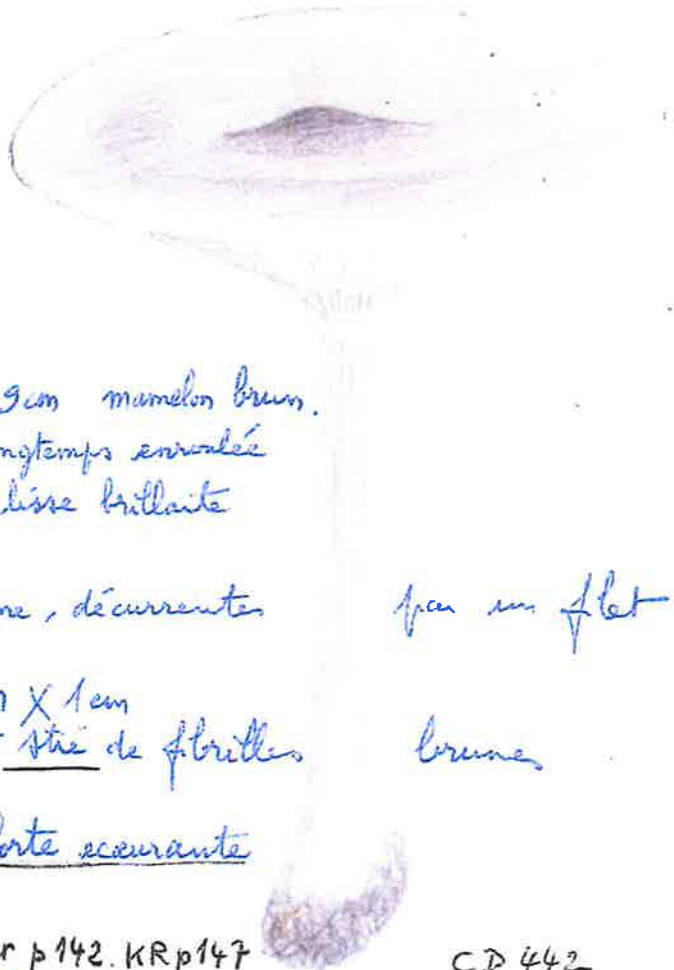 9cm mamelon brun.
ngtemps enroulée
lisse brillante
ne, décurrentes par un filet
X 1cm
strié de fibrilles brunes
orte écœurante
r p142. KRp147 CD 442